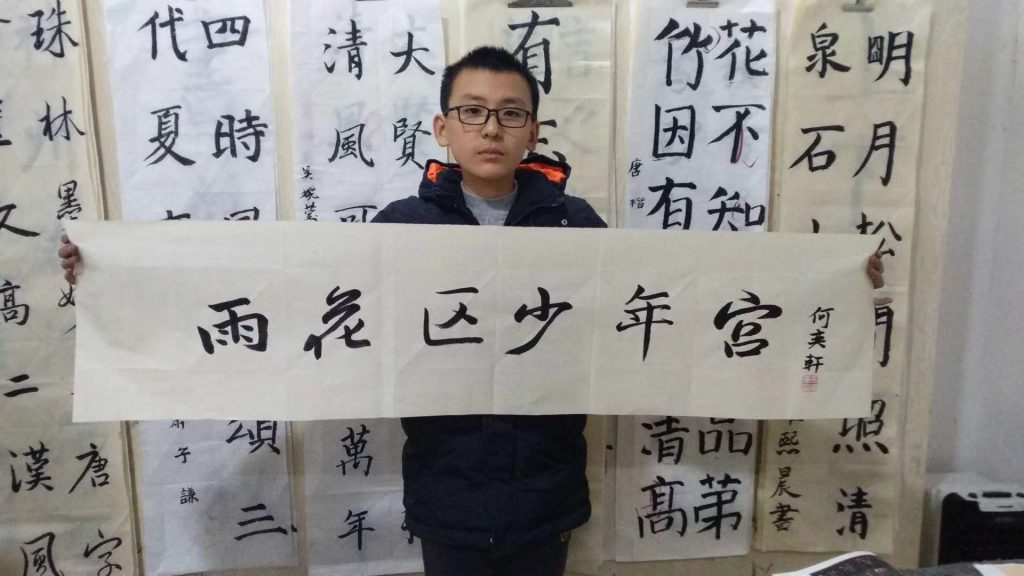 雨花区少年宫
何奕軒
明月松
照清
泉石
熙晨書
花不知
品第
竹因有
清高
唐楷
有
大賢
清風
萬年
四時
頌三
代夏
子謙
珠林
唐字
高二漢風